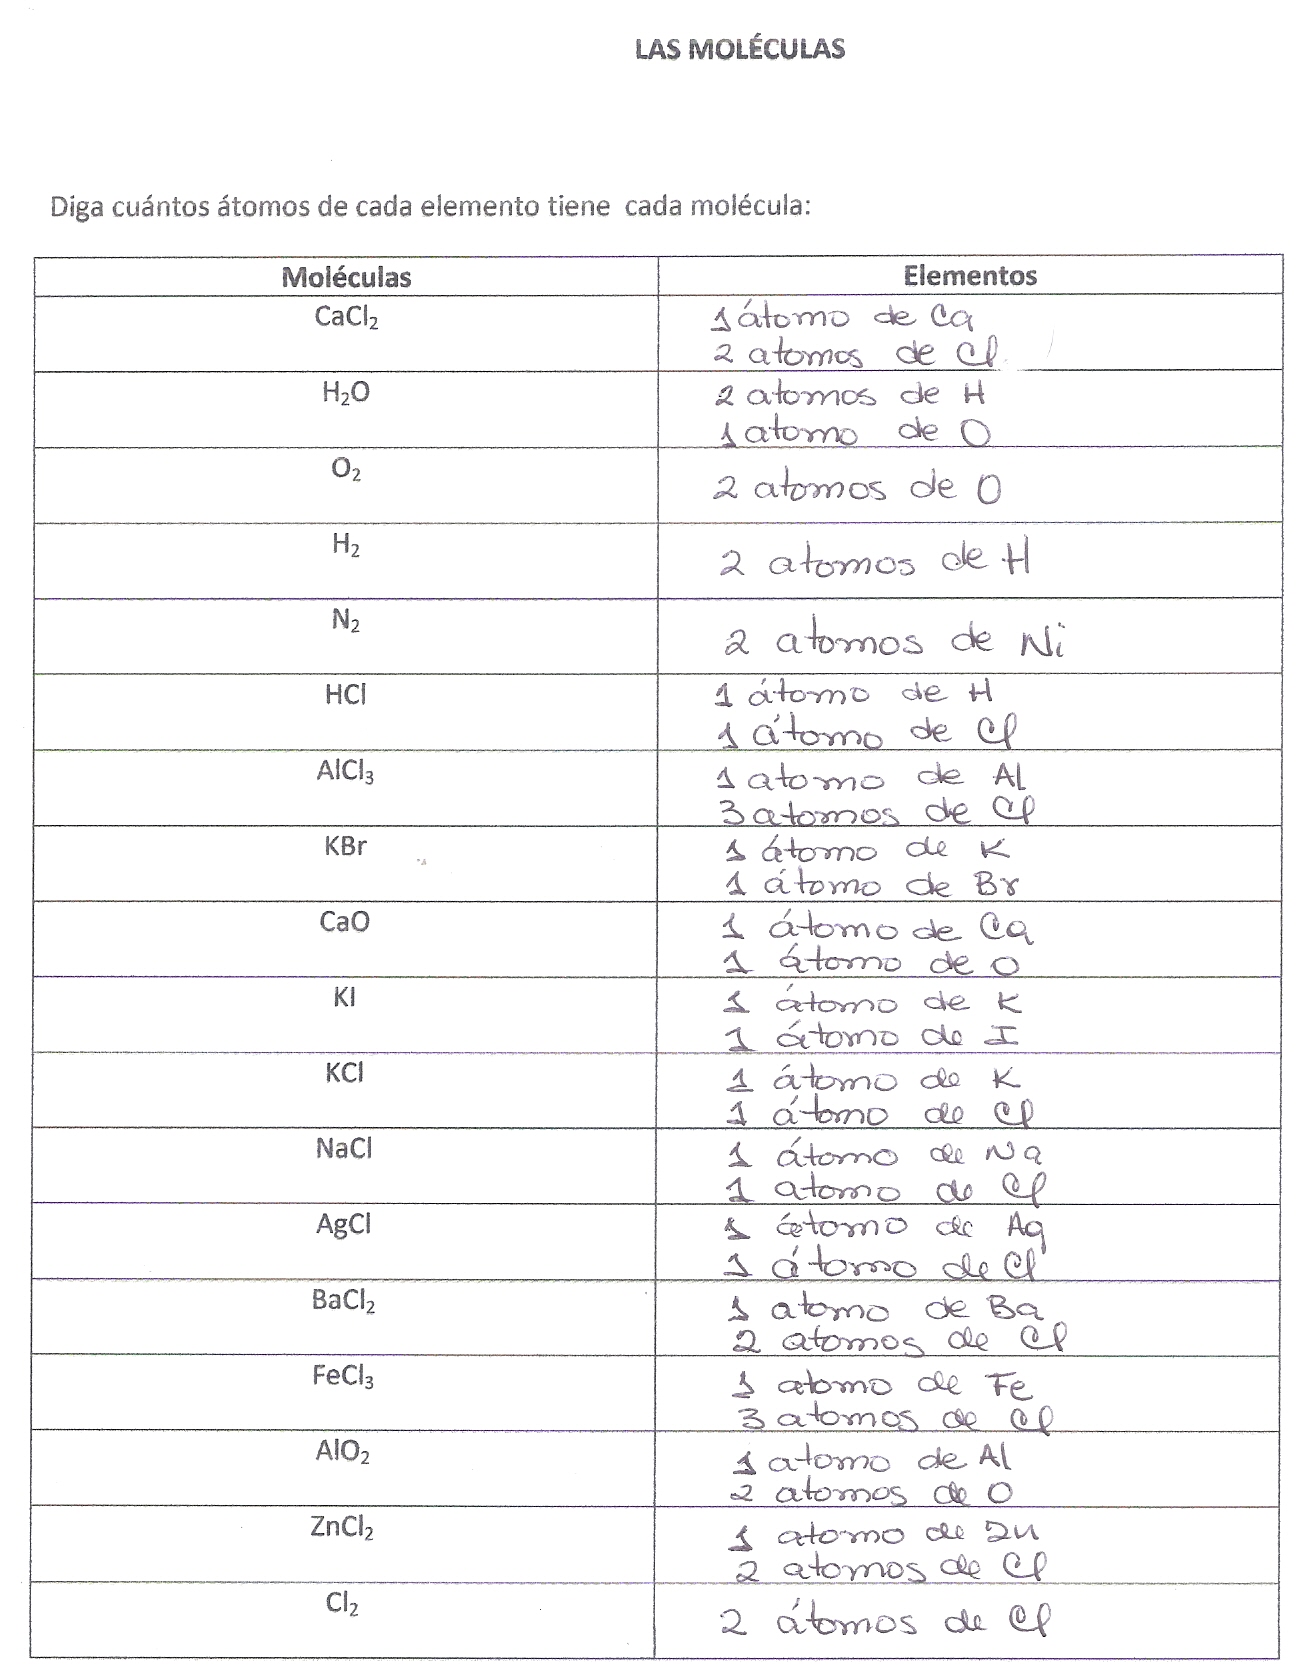 LAS MOLÉCULAS
Diga cuántos átomos de cada elemento tiene cada molécula:
Moléculas Elementos
CaCl₂ 1 átomo de Ca
2 atomos de Cl
H₂O 2 atomos de H
1 atomo de O
O₂ 2 atomos de O
H₂ 2 atomos de H
N₂ 2 atomos de Ni
HCl 1 átomo de H
1 átomo de Cl
AlCl₃ 1 atomo de Al
3 atomos de Cl
KBr 1 átomo de K
1 átomo de Br
CaO 1 átomo de Ca
1 átomo de O
KI 1 átomo de K
1 átomo de I
KCl 1 átomo de K
1 átomo de Cl
NaCl 1 átomo de Na
1 atomo de Cl
AgCl 1 átomo de Ag
1 átomo de Cl
BaCl₂ 1 atomo de Ba
2 atomos de Cl
FeCl₃ 1 atomo de Fe
3 atomos de Cl
AlO₂ 1 atomo de Al
2 atomos de O
ZnCl₂ 1 atomo de Zn
2 atomos de Cl
Cl₂ 2 átomos de Cl